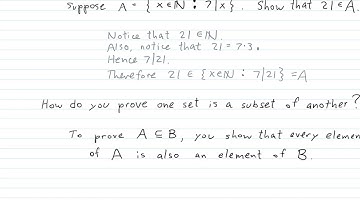 Suppose A = { x ∈ ℕ : 7 | x }. Show that 21 ∈ A.
Notice that 21 ∈ ℕ.
Also, notice that 21 = 7·3.
Hence 7|21.
Therefore 21 ∈ {x ∈ ℕ : 7|21} = A
How do you prove one set is a subset of another?
To prove A ⊆ B, you show that every elemen
of A is also an element of B.